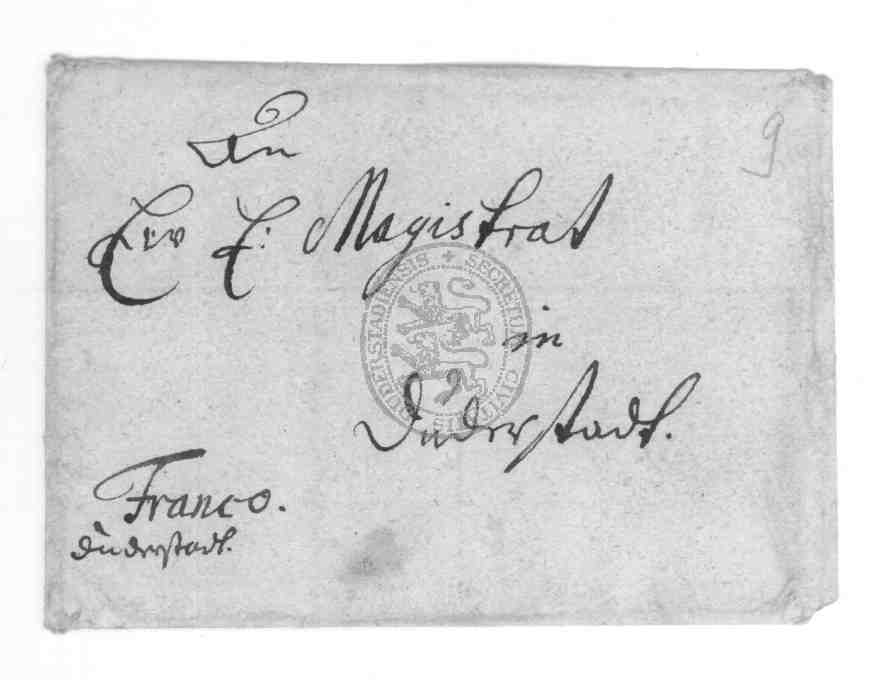 An
9
Ew E: Magistrat
in
Duderstadt.
Franco.
Duderstadt.
SECRETUM CIVITATIS DUDERSTADIENSIS